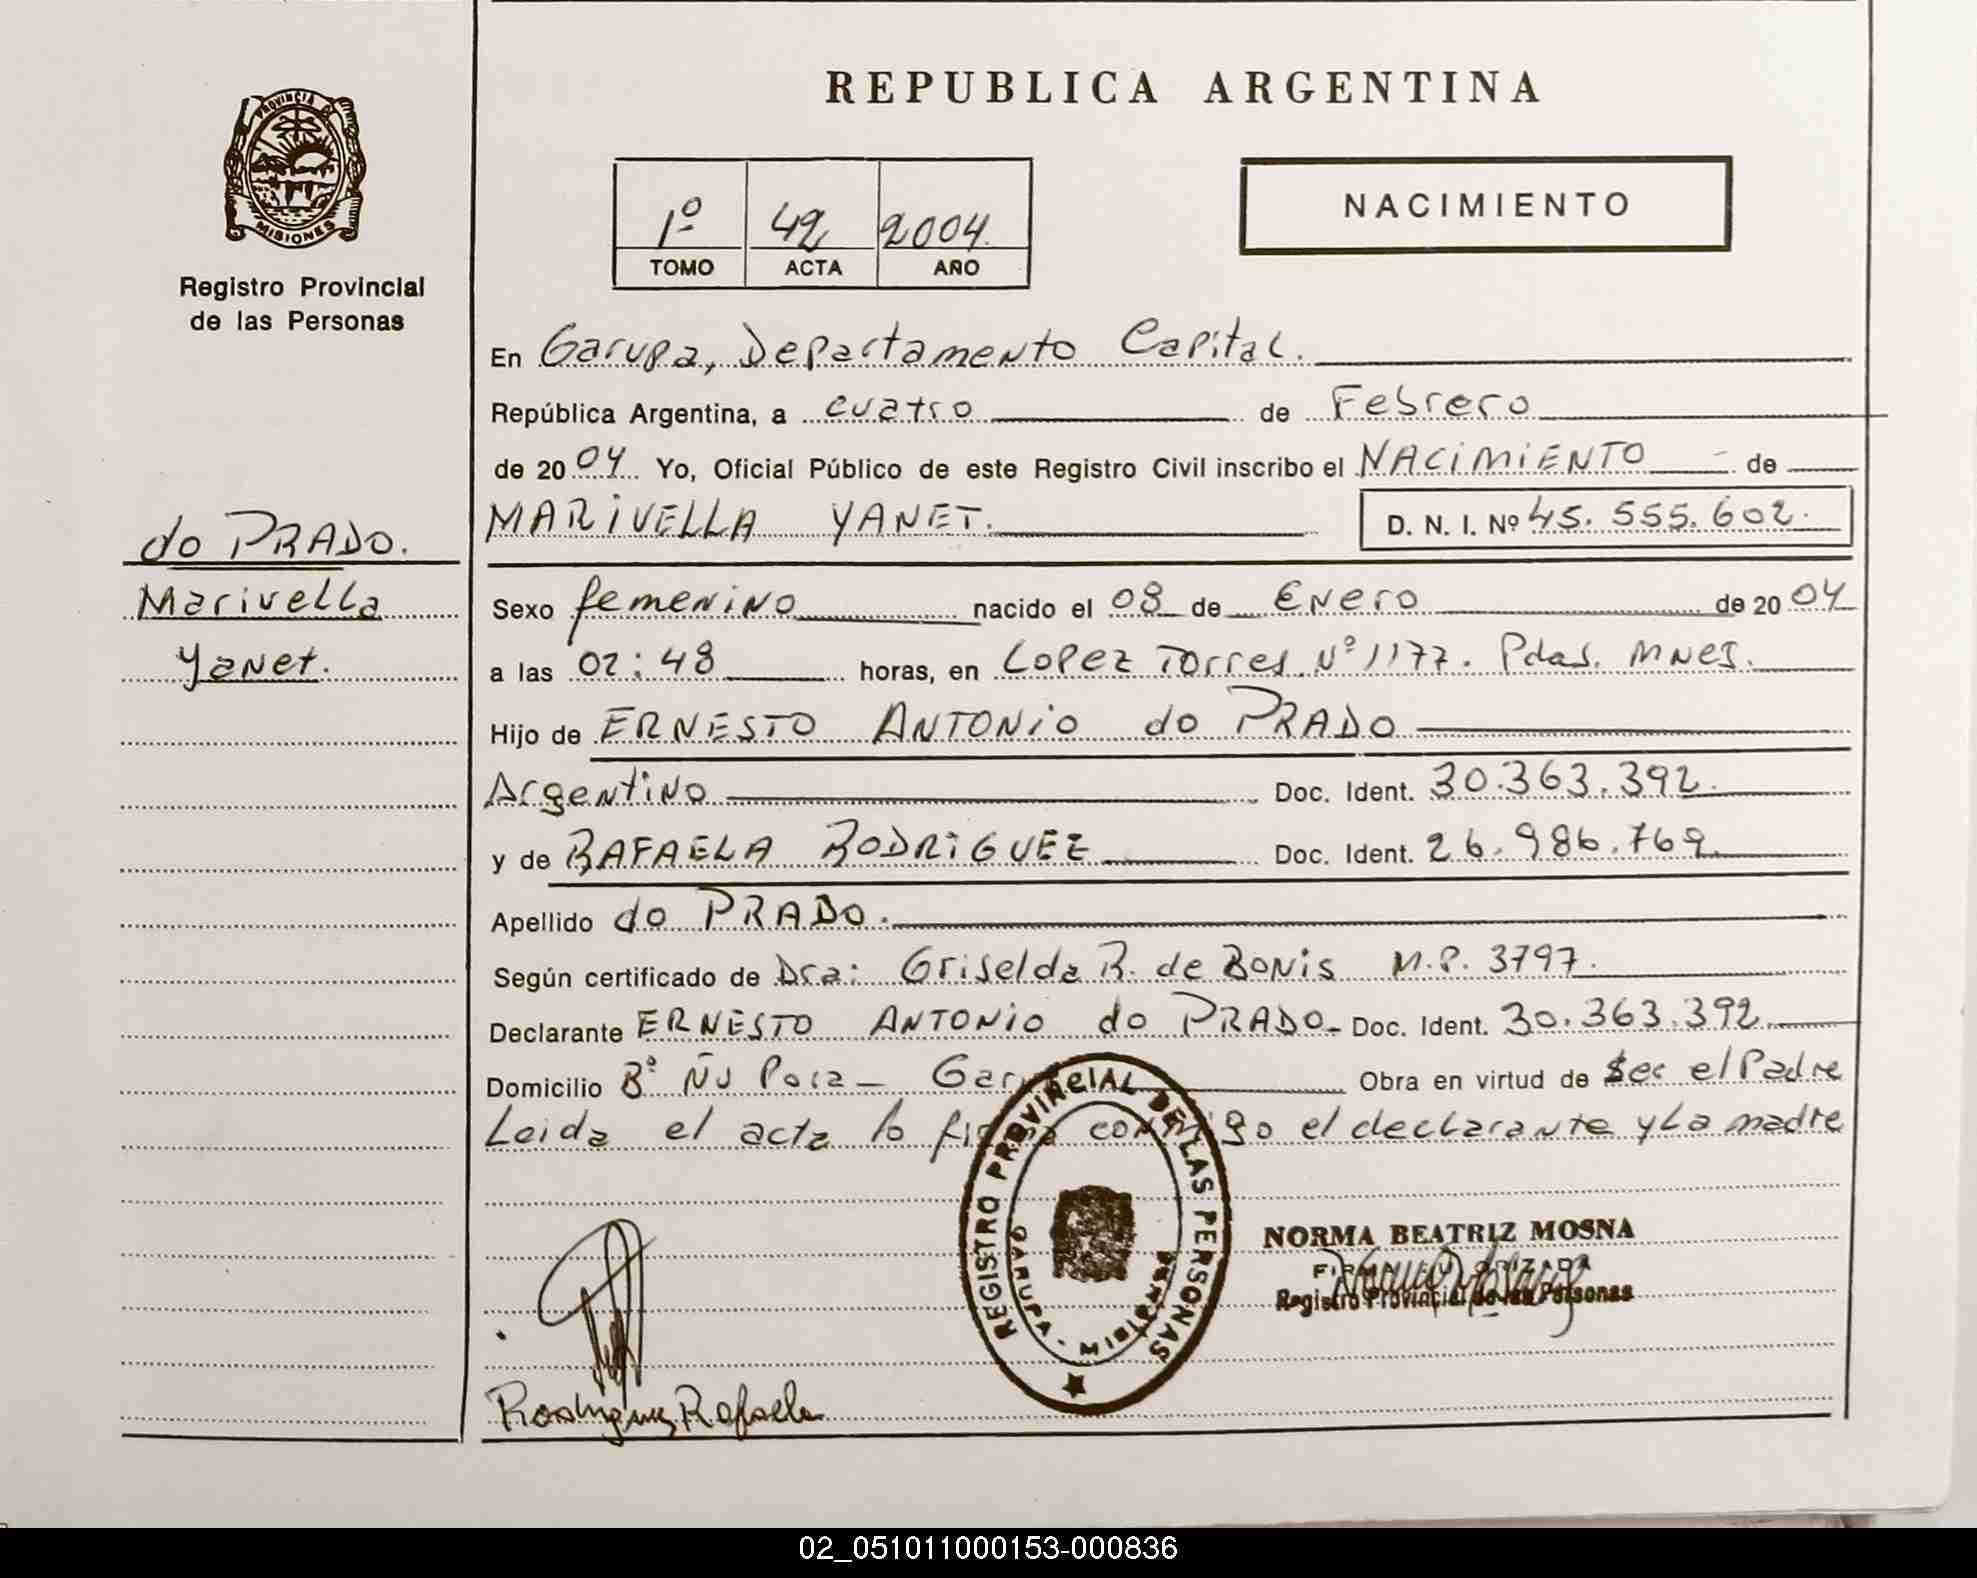 REPUBLICA ARGENTINA
PROVINCIA DE
MISIONES
Registro Provincial
de las Personas
1º 42 2004
TOMO ACTA AÑO
NACIMIENTO
do PRADO.
Marivella
Yanet.
En Garupa, Departamento Capital.
República Argentina, a cuatro de Febrero
de 2004 Yo, Oficial Público de este Registro Civil inscribo el NACIMIENTO de
MARIVELLA YANET. D. N. I. Nº 45.555.602.
Sexo femenino nacido el 08 de Enero de 2004
a las 02:48 horas, en Lopez Torres Nº 1177. Pdas. Mnes.
Hijo de ERNESTO ANTONIO do PRADO
Argentino Doc. Ident. 30.363.392.
y de RAFAELA RODRIGUEZ Doc. Ident. 26.986.769.
Apellido do PRADO.
Según certificado de Dra: Griselda R. de Bonis M.P. 3797.
Declarante ERNESTO ANTONIO do PRADO Doc. Ident. 30.363.392.
Domicilio Bº Ñu Pora - Obra en virtud de Ser el Padre
Leida el acta lo firma conmigo el declarante y La madre
REGISTRO PROVINCIAL DE LAS PERSONAS
GARUPA - MISIONES
NORMA BEATRIZ MOSNA
FIRMA AUTORIZADA
Registro Provincial de las Personas
Rodriguez Rafaela
02_051011000153-000836